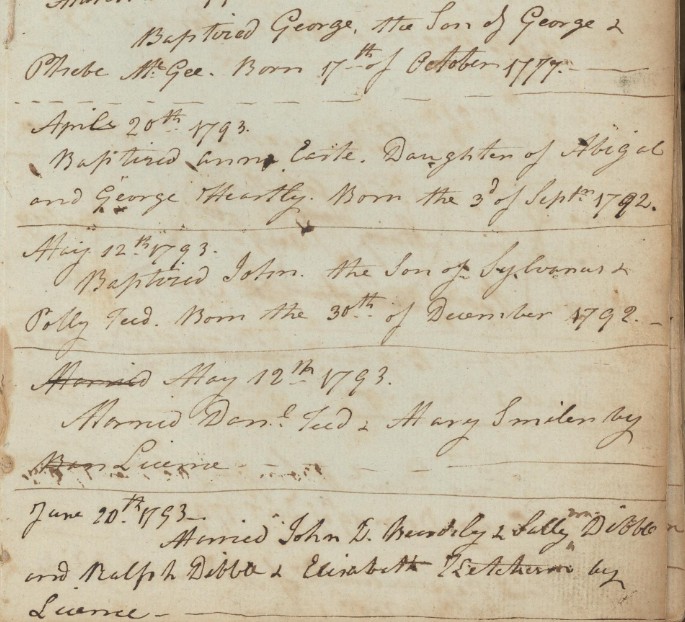 Baptized George, the Son of George &
Phebe McGee. Born 17th of October 1777.
April 20th 1793.
Baptized Anna Earle. Daughter of Abigal
and George Heartly. Born the 3d of Septr 1792.
May 12th 1793.
Baptized John. the Son of Sylvanus &
Polly Teed. Born the 30th of December 1792.
Married May 12th 1793.
Married Danl Teed & Mary Smiler by
Ban Licence
June 20th 1793
Married John D. & Sally Dibble
and Ralph Dibble & Elizabeth Ketchum by
Licence